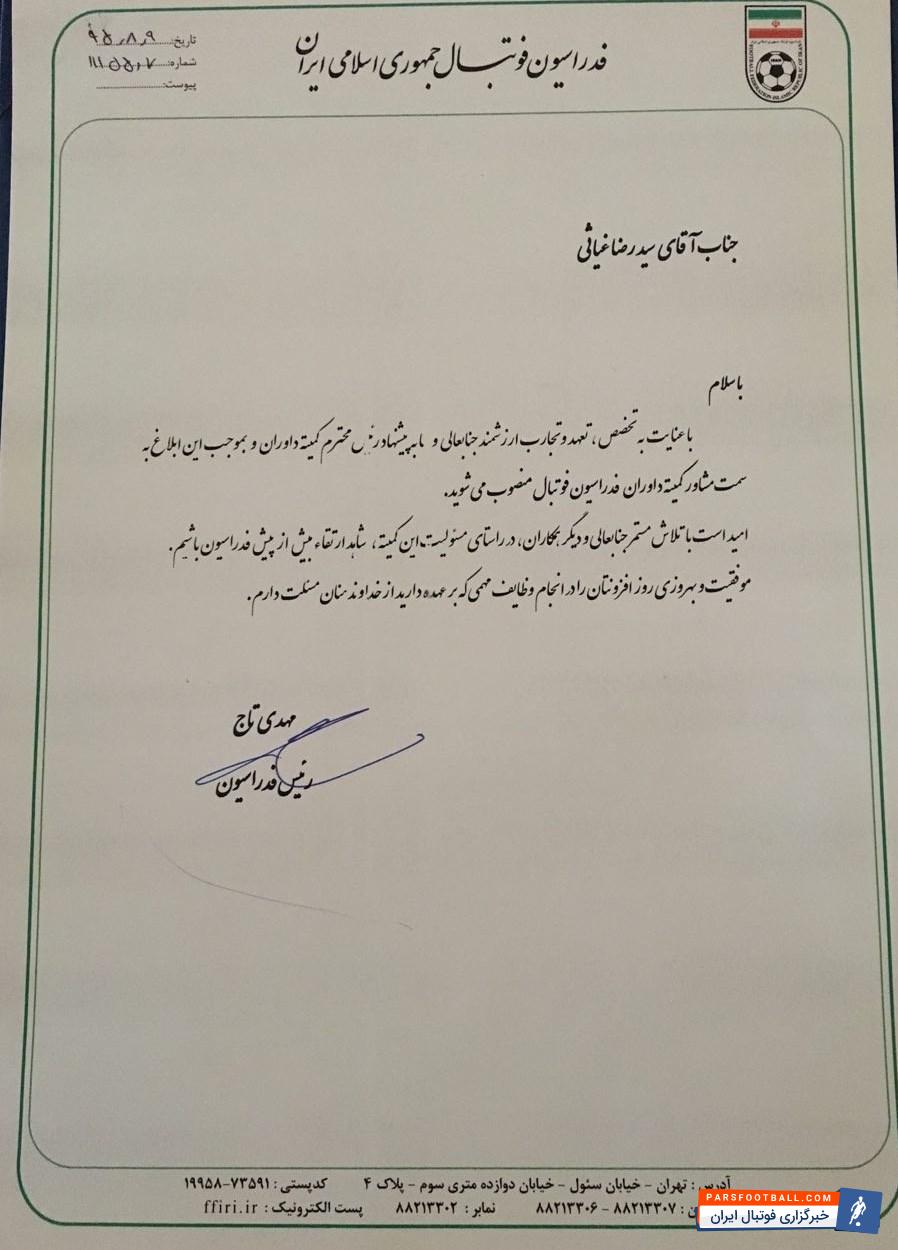 فدراسیون فوتبال جمهوری اسلامی ایران
تاریخ: ۹۵،۸،۹
شماره:
پیوست:
جناب آقای سید رضا غیاثی
باسلام
با عنایت به تخصص، تعهد و تجارب ارزشمند جنابعالی و بنا به پیشنهاد رئیس محترم کمیته داوران و بموجب این ابلاغ به
سمت مشاور کمیته داوران فدراسیون فوتبال منصوب می شوید.
امید است با تلاش مستمر جنابعالی و دیگر همکاران، در راستای مسئولیت این کمیته، شاهد ارتقاء بیش از پیش فدراسیون باشیم.
موفقیت و بهروزی روز افزونتان را در انجام وظایف مهمی که بر عهده دارید از خداوند منان مسئلت دارم.
مهدی تاج
رئیس فدراسیون
آدرس: تهران - خیابان سئول - خیابان دوازده متری سوم - پلاک ۴ کدپستی: ۷۳۵۹۱-۱۹۹۵۸
۸۸۲۱۳۳۰۷ - ۸۸۲۱۳۳۰۶ نمابر: ۸۸۲۱۳۳۰۲ پست الکترونیک: ffiri.ir
PARSFOOTBALL.COM
خبرگزاری فوتبال ایران